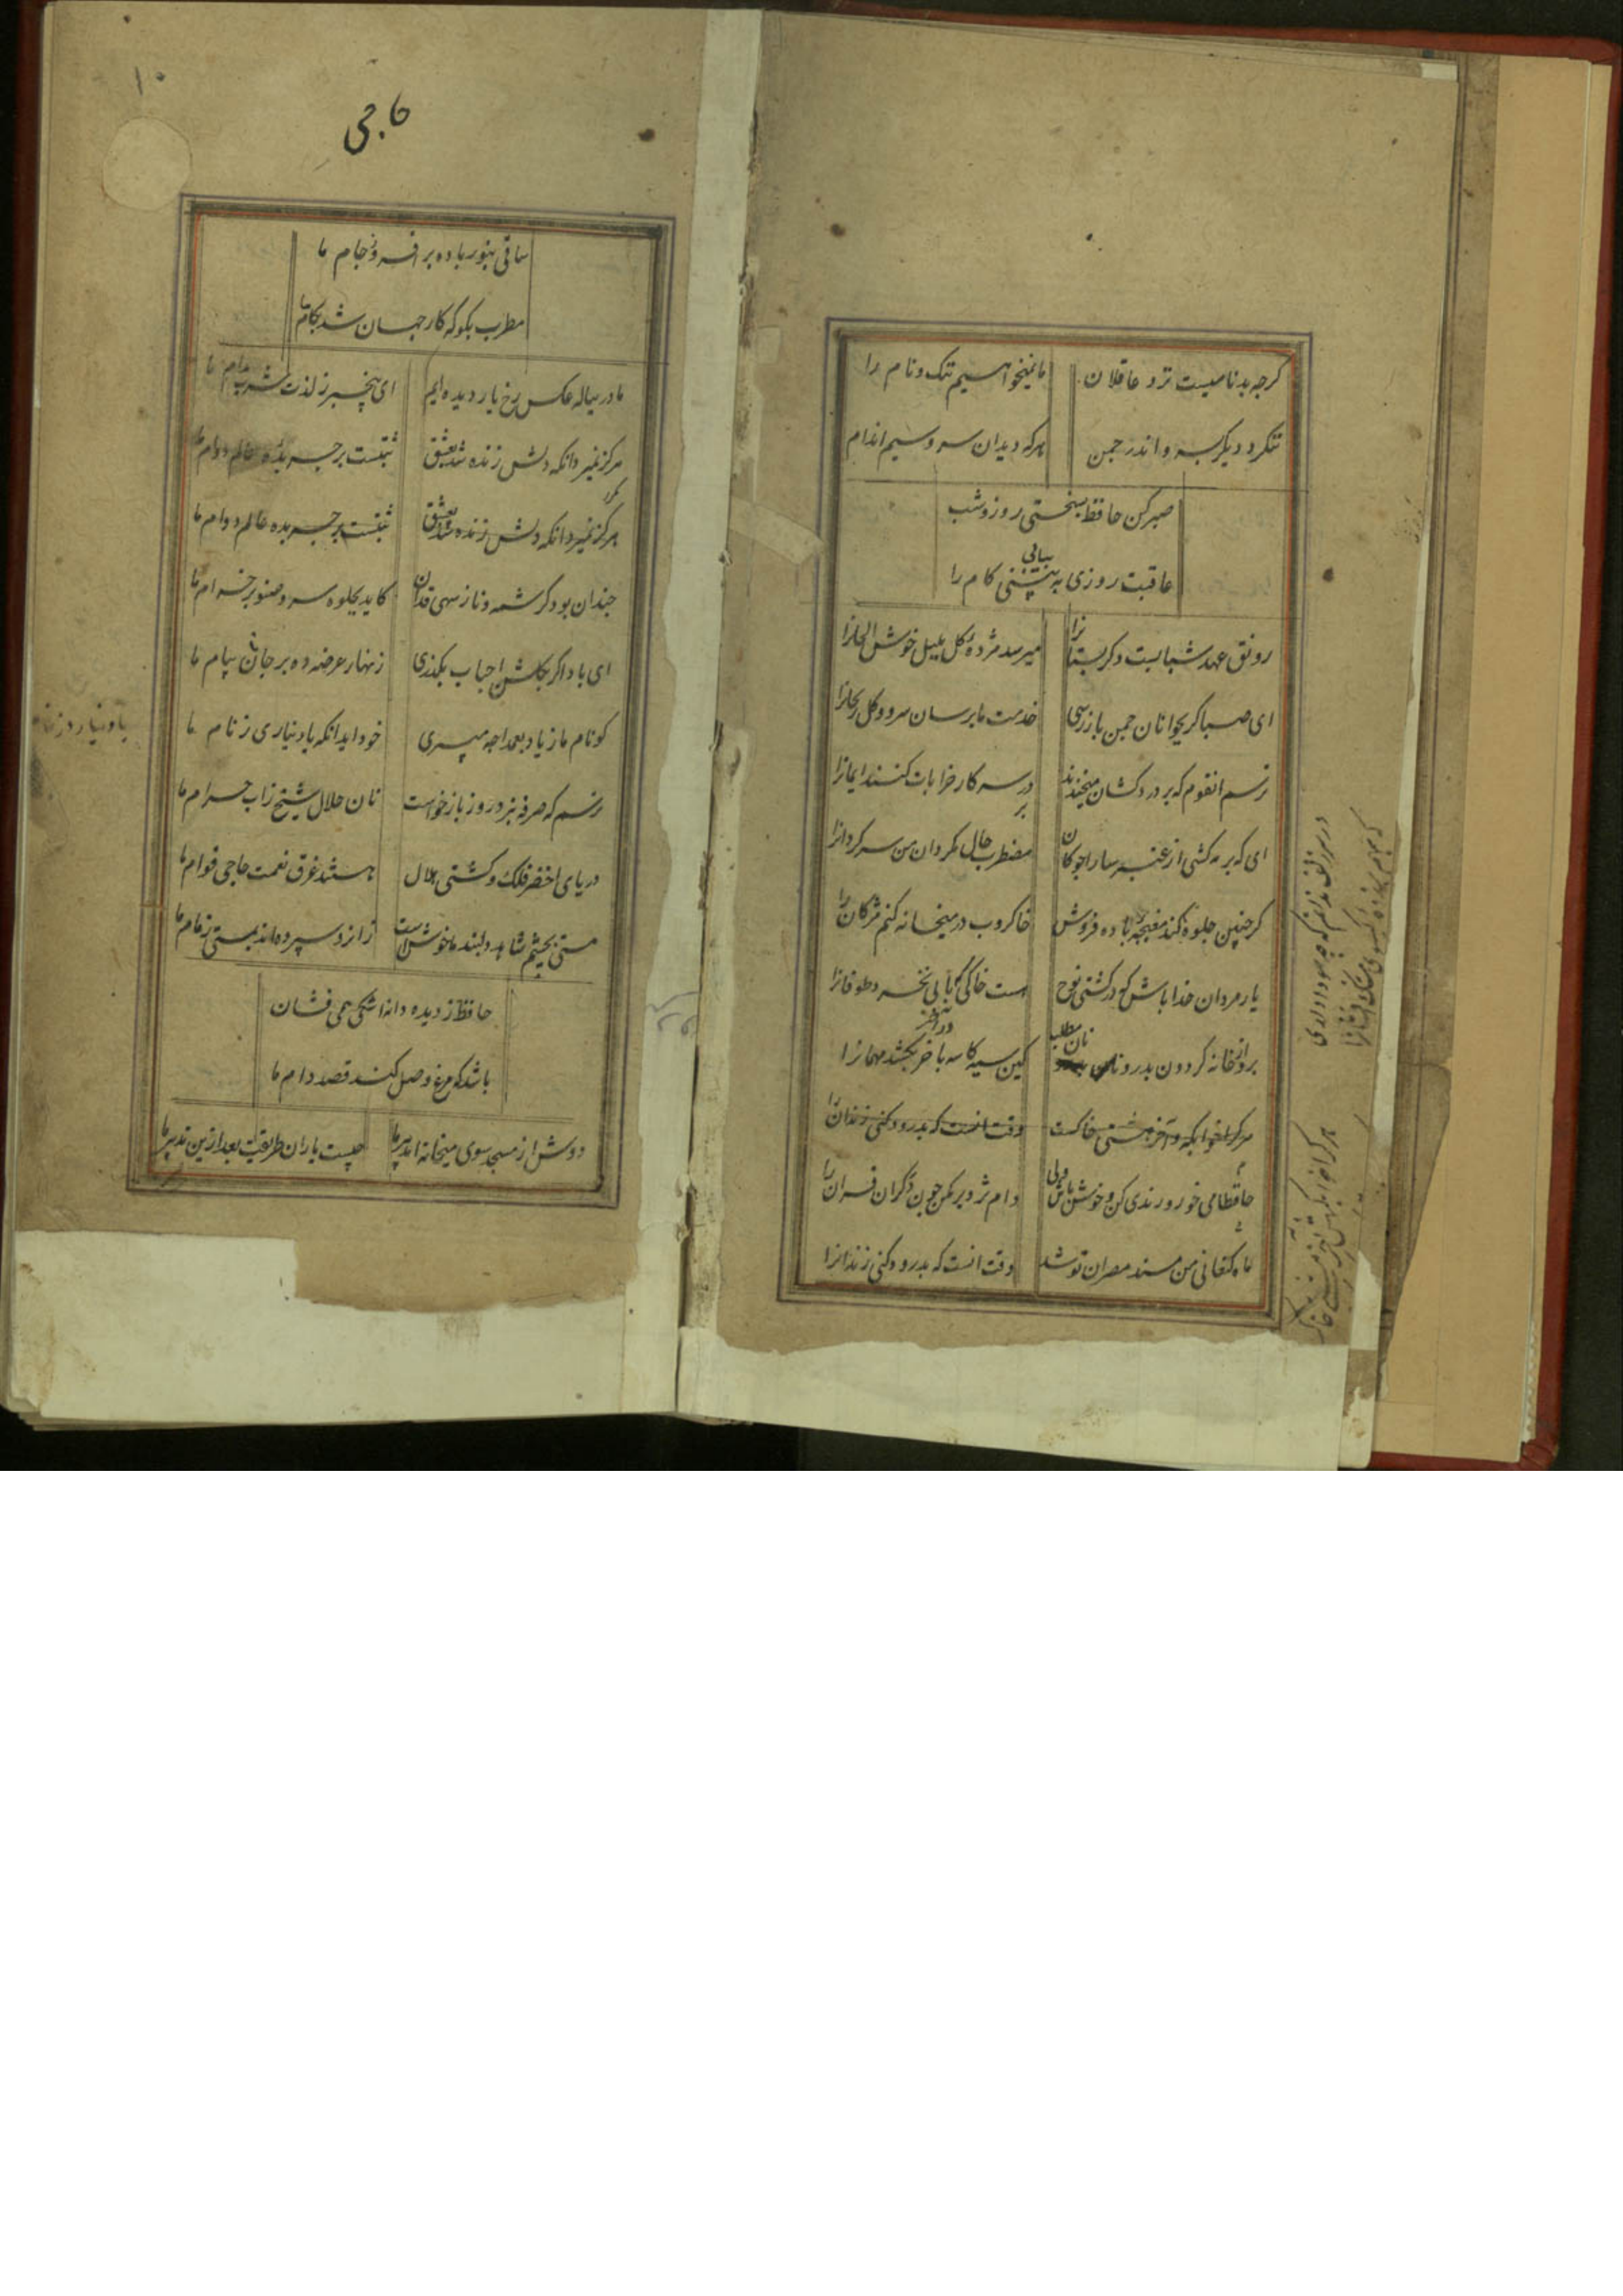 کرچه بدنامیست نزد عاقلان مانمیخواهیم ننک و نام را
ننکرد دیکر بسرو اندر جمن هرکه دید ان سرو سیم اندام
صبر کن حافظ بسختی روز و شب
عاقبت روزی به بینی کام را
بیابی
رونق عهد شبابست دکر بستانرا میرسد مژده کل بلبل خوش الحانرا
ای صبا کر بجوانان جمن باز رسی خدمت ما برسان سرو و کل ریحانرا
ترسم انقوم که بر درد کشان میخندند در سر کار خرابات کنند ایمانرا
ای که بر مه کشی از عنبر سارا جوکان مضطرب حال مکردان من سرکردانرا
کر چنین جلوه کند مغبچه باده فروش خاکروب در میخانه کنم مژکان را
یار مردان خدا باش که در کشتی نوح هست خاکی که بابی نخرد طوفانرا
برو از خانه کردون بدر و نان مطلب کین سیه کاسه باخر بکشد مهمانرا
هر کرا خوابکه آخر مشتی خاکست وقت انست که بدرود کنی زندانرا
حافظا می خور و رندی کن و خوش باش ولی دام تزویر مکن چون دکران قران را
ماه کنعانی من مسند مصر ان تو شد وقت انست که بدرود کنی زندانرا
در سر زلف ندانم که چه سودا داری
که بهم بر زده کیسوی مشک افشانرا
هر کرا خوابکه آخر مشتی خاک
۱۰
حاجی
ساقی بنور باده بر افروز جام ما
مطرب بکو که کار جهان شد بکام ما
ما در پیاله عکس رخ یار دیده ایم ای بیخبر ز لذت شرب مدام ما
هرکز نمیرد انکه دلش زنده شد بعشق ثبتست بر جریده عالم دوام ما
هرکز نمیرد انکه دلش زنده شد بعشق ثبتست بر جریده عالم دوام ما
چندان بود کرشمه و ناز سهی قدان کاید بجلوه سرو صنوبر خرام ما
ای باد اکر بکلشن احباب بکذری زنهار عرضه ده بر جانان پیام ما
کو نام ما ز یاد بعمدا چه میبری خود اید انکه یاد نیاری ز نام ما
یاد نیارد ز نام
ترسم که صرفه نبرد روز بازخواست نان حلال شیخ ز اب حرام ما
دریای اخضر فلک و کشتی هلال هستند غرق نعمت حاجی قوام ما
مستی بچشم شاهد دلبند ما خوش است زانرو سپرده اند بمستی زمام ما
حافظ ز دیده دانه اشکی همی فشان
باشد که مرغ وصل کند قصد دام ما
دوش از مسجد سوی میخانه امد پیر ما چیست یاران طریقت بعد ازین تدبیر ما